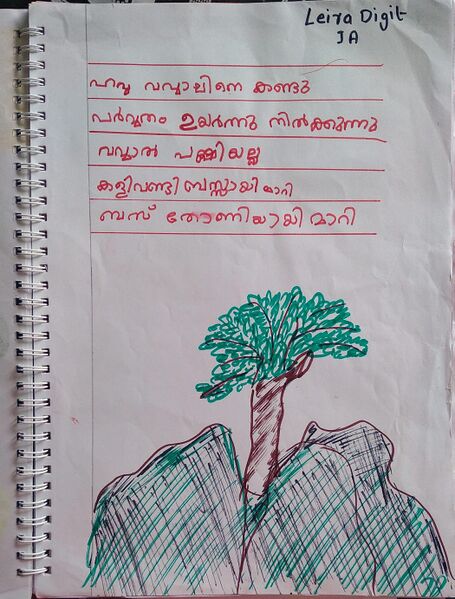 Leira Digit
IA
ഹവ്വ വവ്വാലിനെ കണ്ടു
പർവ്വതം ഉയർന്നു നിൽക്കുന്നു
വവ്വാൽ പക്ഷിയല്ല
കളിവണ്ടി ബസ്സായി മാറി
ബസ് തോണിയായി മാറി